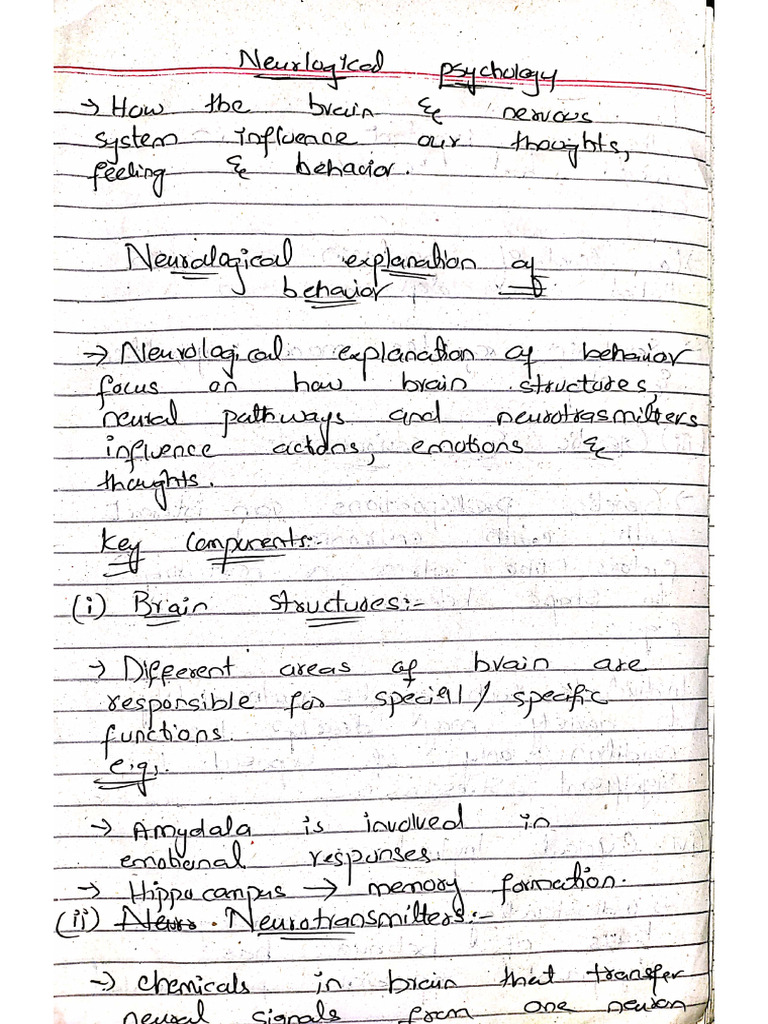 Neurlogical psychology
→ How the brain & nervous
system influence our thoughts,
feeling & behavior.
Neurological explanation of
behavior
→ Neurological explanation of behavior
focus on how brain structures,
neural pathways and neurotrasmitters
influence actions, emotions &
thoughts.
Key Components:-
(i) Brain structures:-
→ Different areas of brain are
responsible for special/specific
functions.
e.g,.
→ Amydala is involved in
emotional responses.
→ Hippocampus → memory formation.
(ii) Neuro. Neurotransmitters:-
→ chemicals in brain that transfer
neural signals from one neuron